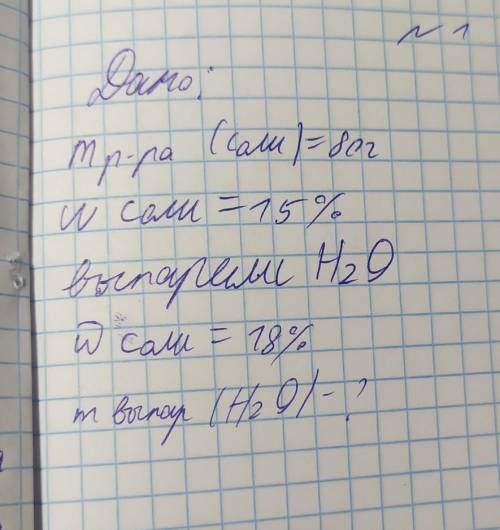 № 1
Дано:
m р-ра (соли) = 80г
w соли = 15%
выпарили H₂O
w соли = 18%
m выпар (H₂O) - ?